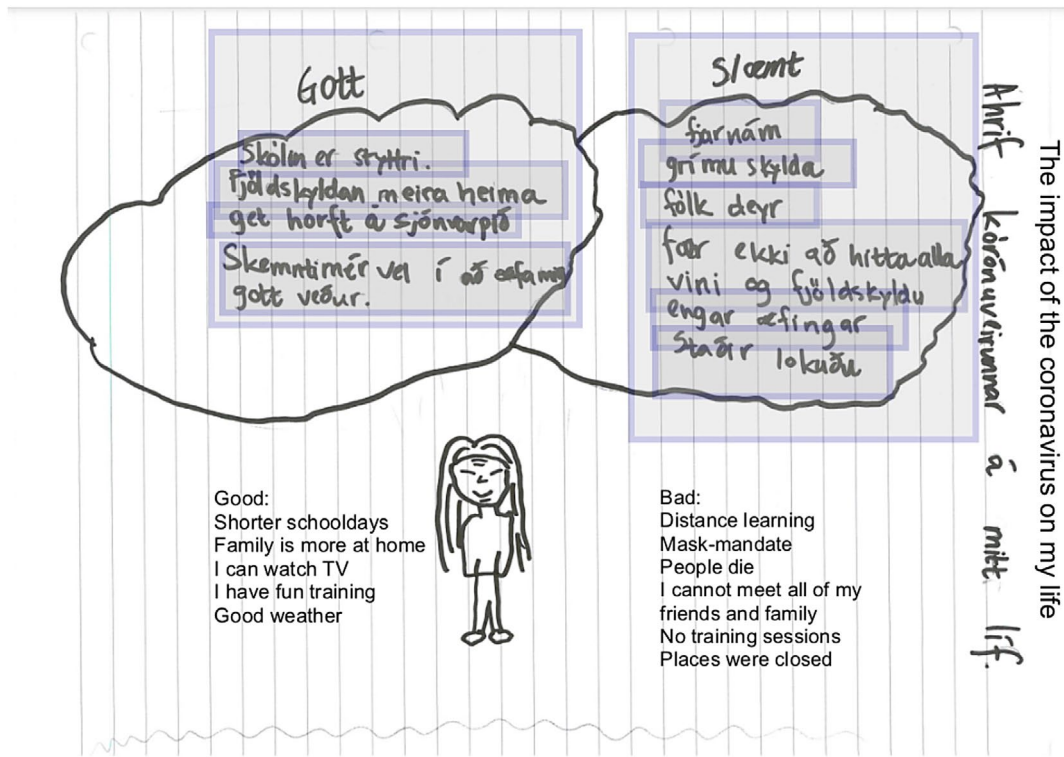 Gott
Skólin er styttri.
Fjöldskyldan meira heima
get horft á sjónvarpið
Skemmti mér vel í að æfa mig
gott veður.
Slæmt
fjarnám
grímu skylda
fólk deyr
fær ekki að hitta alla
vini og fjöldskyldu
engar æfingar
Staðir lokuðu
Ahrif kórónuveirunnar á mitt líf.
The impact of the coronavirus on my life
Good:
Shorter schooldays
Family is more at home
I can watch TV
I have fun training
Good weather
Bad:
Distance learning
Mask-mandate
People die
I cannot meet all of my
friends and family
No training sessions
Places were closed